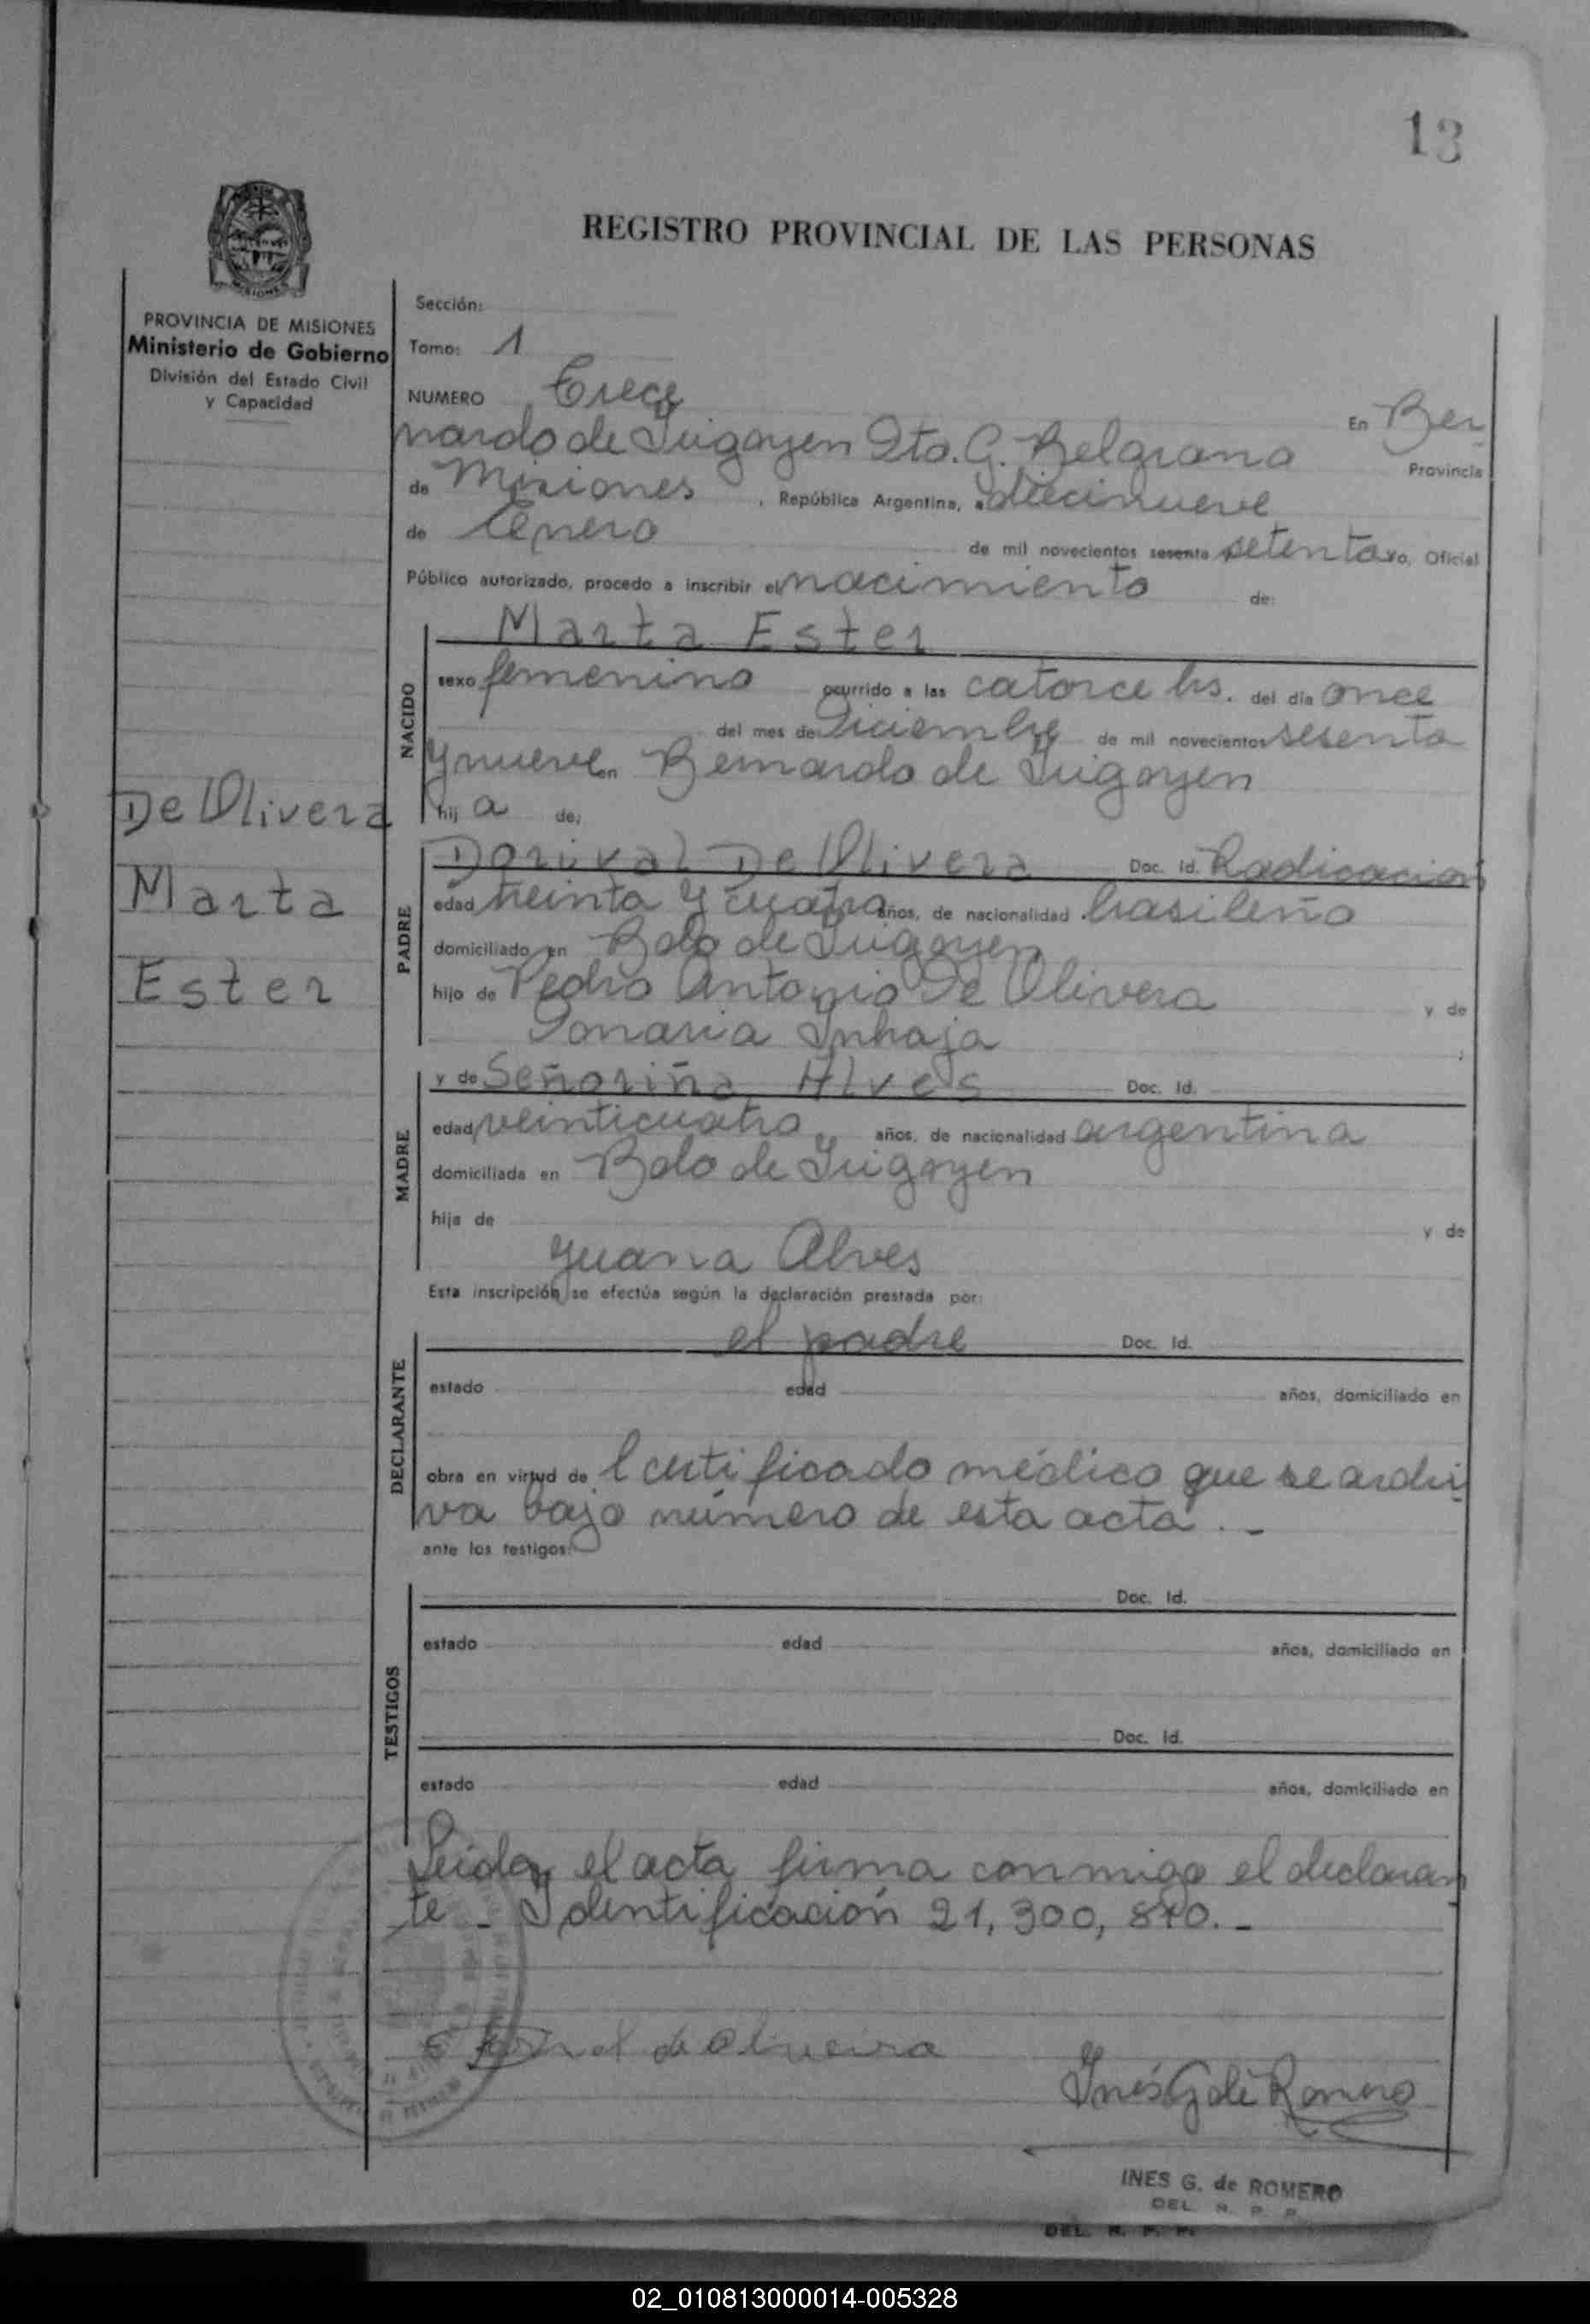 13
REGISTRO PROVINCIAL DE LAS PERSONAS
PROVINCIA DE MISIONES
Ministerio de Gobierno
División del Estado Civil
y Capacidad
Sección:
Tomo: 1
NUMERO Trece
En Ber
nardo de Irigoyen Dto. G. Belgrano Provincia
de Misiones , República Argentina, a diecinueve
de Enero de mil novecientos sesenta setenta yo, Oficial
Público autorizado, procedo a inscribir el nacimiento de:
NACIDO
Marta Ester
sexo femenino ocurrido a las catorce hs. del día once
del mes de Diciembre de mil novecientos sesenta
y nueve en Bernardo de Irigoyen
hij a de:
De Olivera
Marta
Ester
PADRE
Dorival De Olivera Doc. Id. Radicacion
edad treinta y cuatro años, de nacionalidad brasileño
domiciliado en Bdo de Irigoyen
hijo de Pedro Antonio De Olivera y de
Inhaja ;
MADRE
y de Señoriña Alves Doc. Id.
edad veinticuatro años, de nacionalidad argentina
domiciliada en Bdo de Irigoyen
hija de y de
Juana Alves
Esta inscripción se efectúa según la declaración prestada por:
DECLARANTE
el padre Doc. Id.
estado edad años, domiciliado en
obra en virtud de l certificado médico que se archi
va bajo número de esta acta . -
ante los testigos:
TESTIGOS
Doc. Id.
estado edad años, domiciliado en
Doc. Id.
estado edad años, domiciliado en
Leida el acta firma conmigo el declaran
te - Identificación 21,300,840. -
de Oliveira
Inés G de Romero
INES G. de ROMERO
DEL. R. P. P.
DEL. R. P. P.
02_010813000014-005328